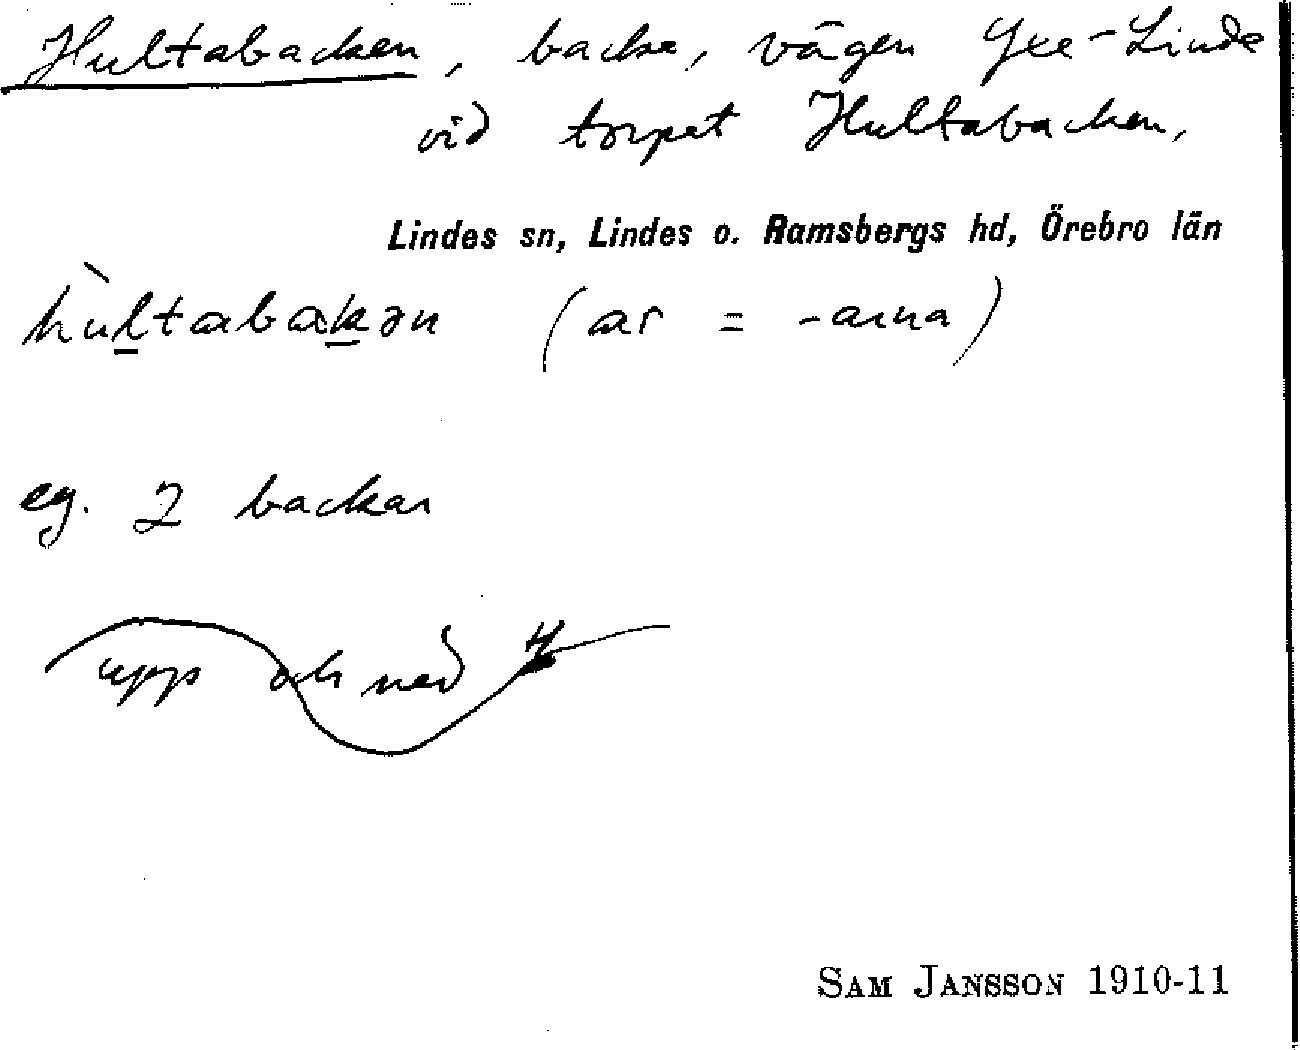 Hultabacken, backe, vägen Yxe - Linde
vid torpet Hultabacken,
Lindes sn, Lindes o. Ramsbergs hd, Örebro län
hùltabakən (ar = -arna)
eg. 2 backar
upp och ned
SAM JANSSON 1910-11